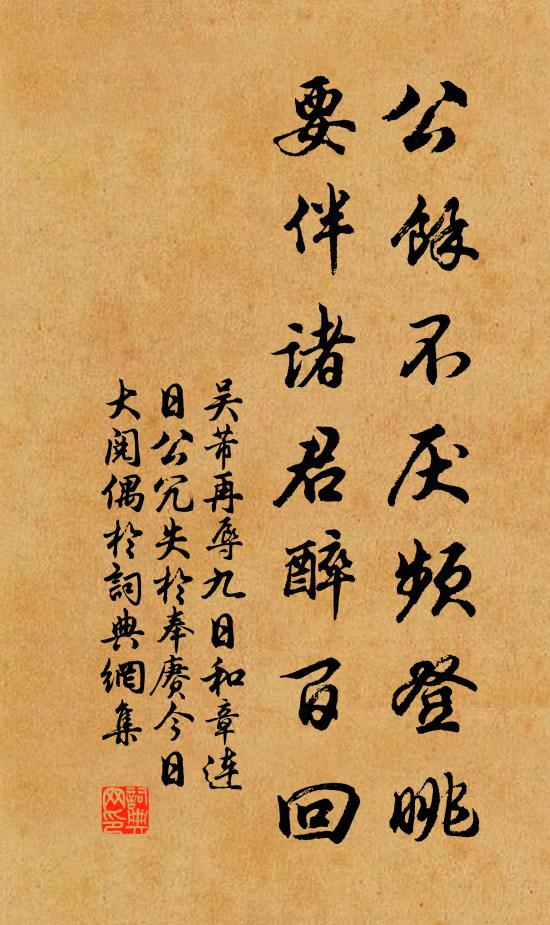 公餘不厌頻登眺
要伴诸君醉百回
吴芾再辱九日和章连
日公冗失於奉赓今日
大阅偶於詞典網集
詞典網印